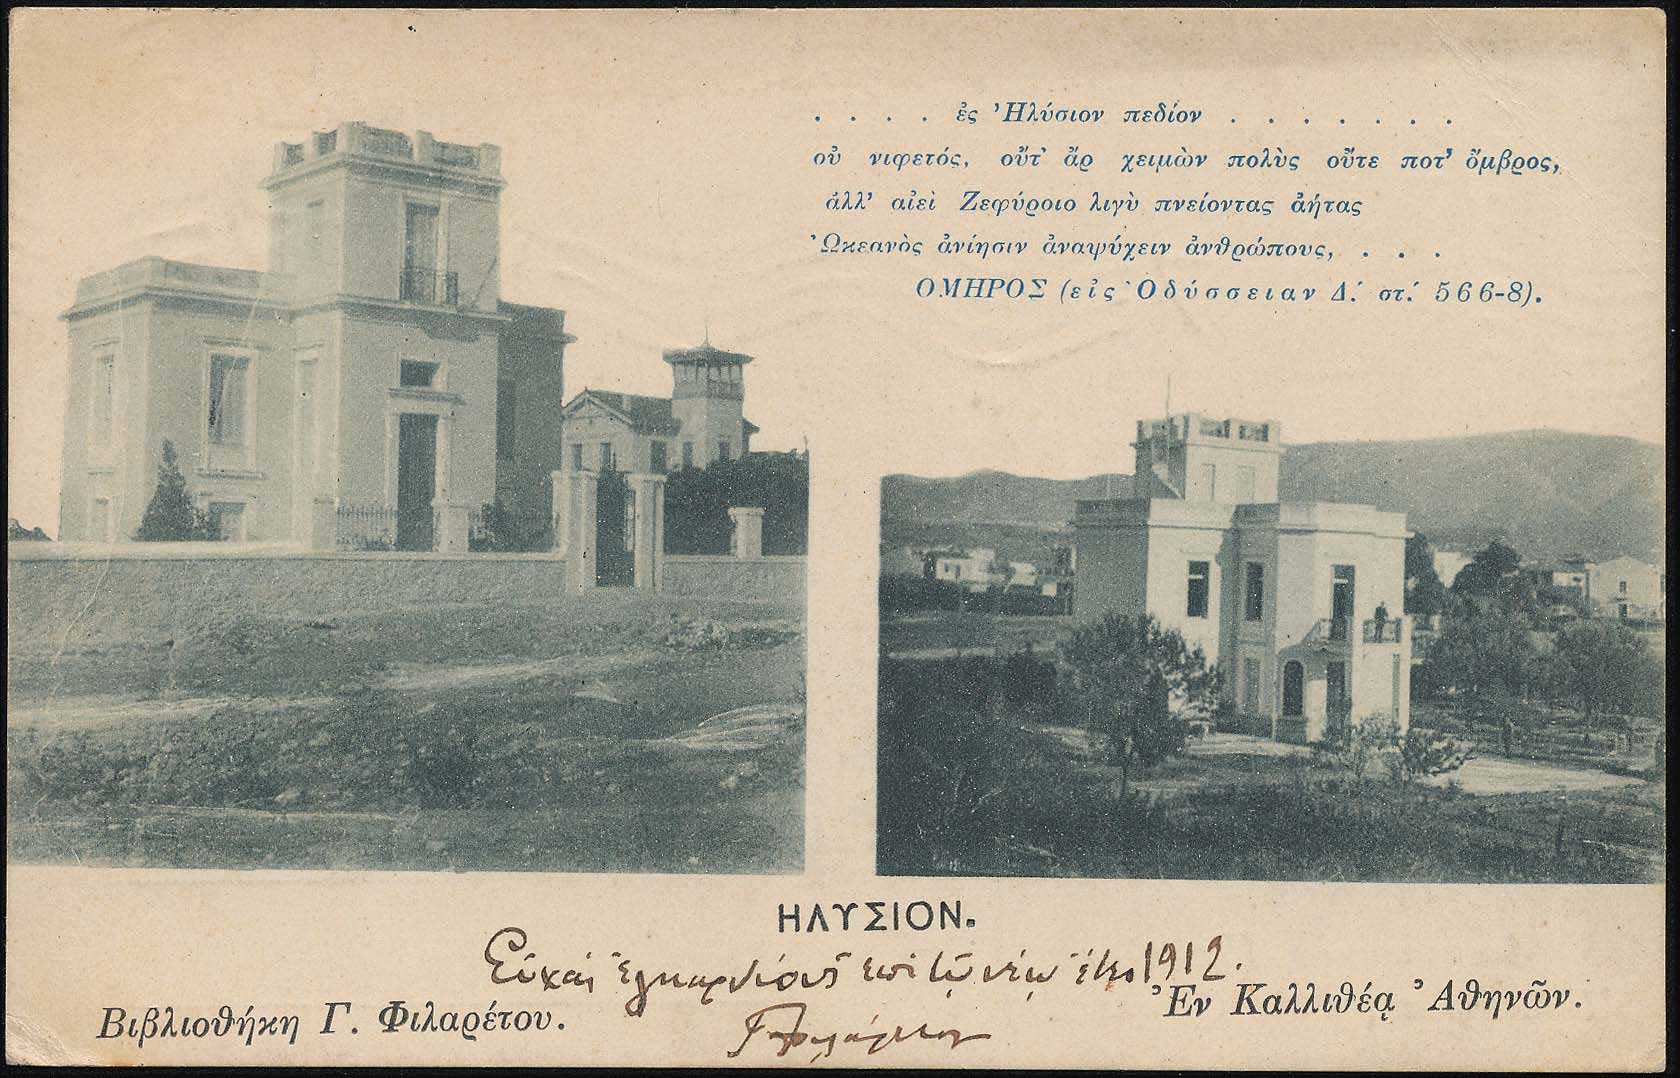 . . . . ἐς Ἠλύσιον πεδίον . . . . . . .
οὐ νιφετός, οὔτ' ἂρ χειμὼν πολὺς οὔτε ποτ' ὄμβρος,
ἀλλ' αἰεὶ Ζεφύροιο λιγὺ πνείοντας ἀήτας
Ὠκεανὸς ἀνίησιν ἀναψύχειν ἀνθρώπους, . . .
ΟΜΗΡΟΣ (εἰς Ὀδύσσειαν Δ΄. στ΄. 566-8).
ΗΛΥΣΙΟΝ.
Εὐχαὶ ἐγκαρδίους ἐπὶ τῷ νέῳ ἔτει 1912.
Βιβλιοθήκη Γ. Φιλαρέτου.
Ἐν Καλλιθέᾳ Ἀθηνῶν.